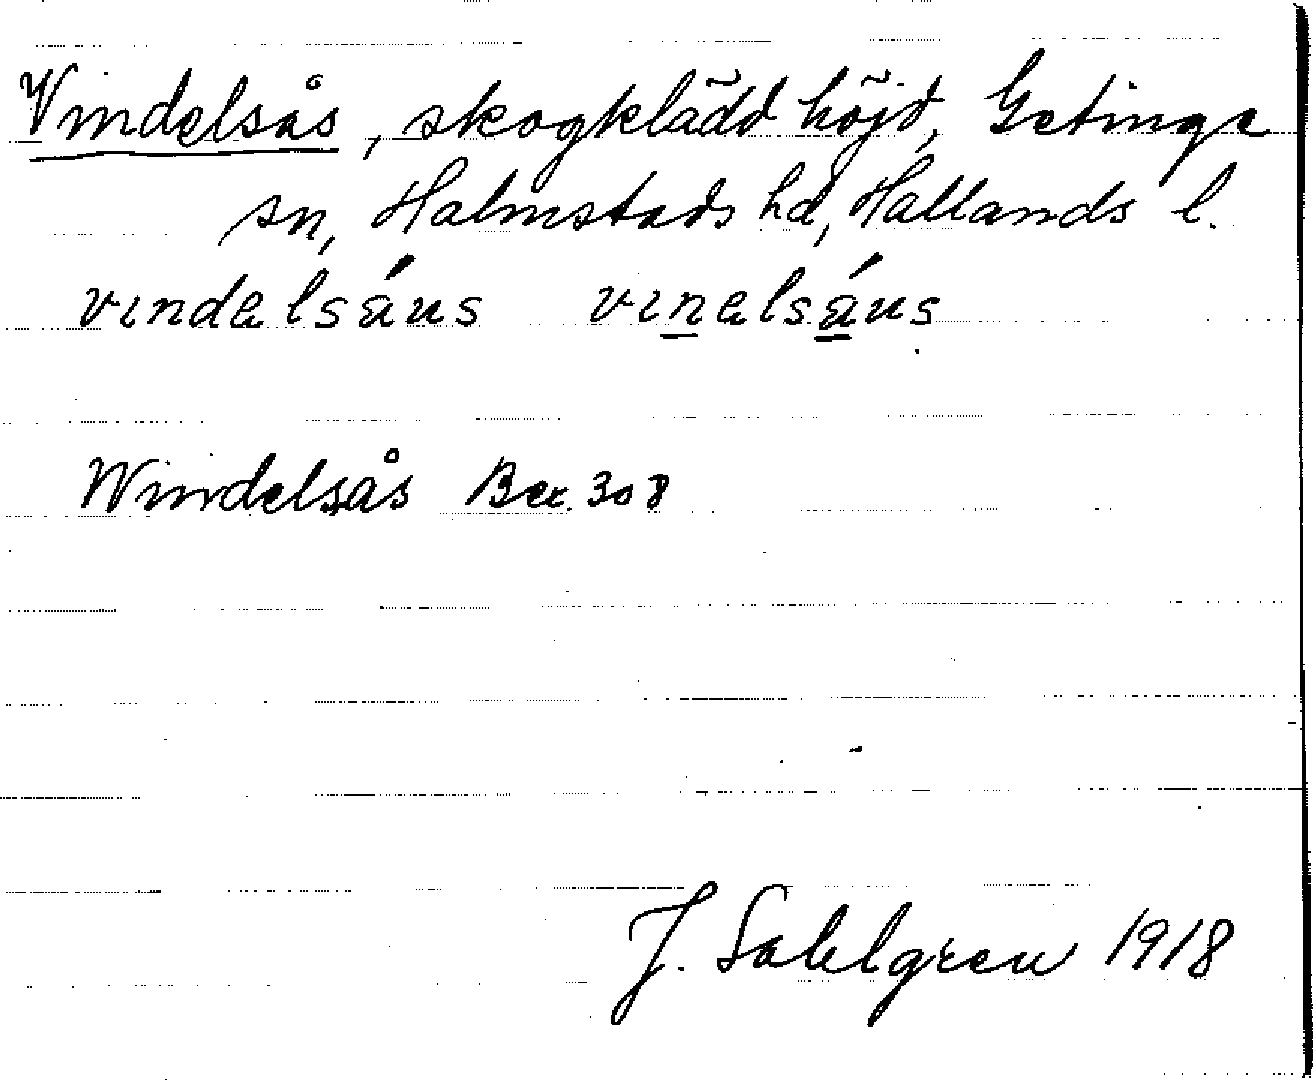 Vindelsås, skogklädd höjd, Getinge
sn, Halmstads hd, Hallands l.
vındəlsáus vınəlsáus
Windelsås Bex. 308
J. Sahlgren 1918